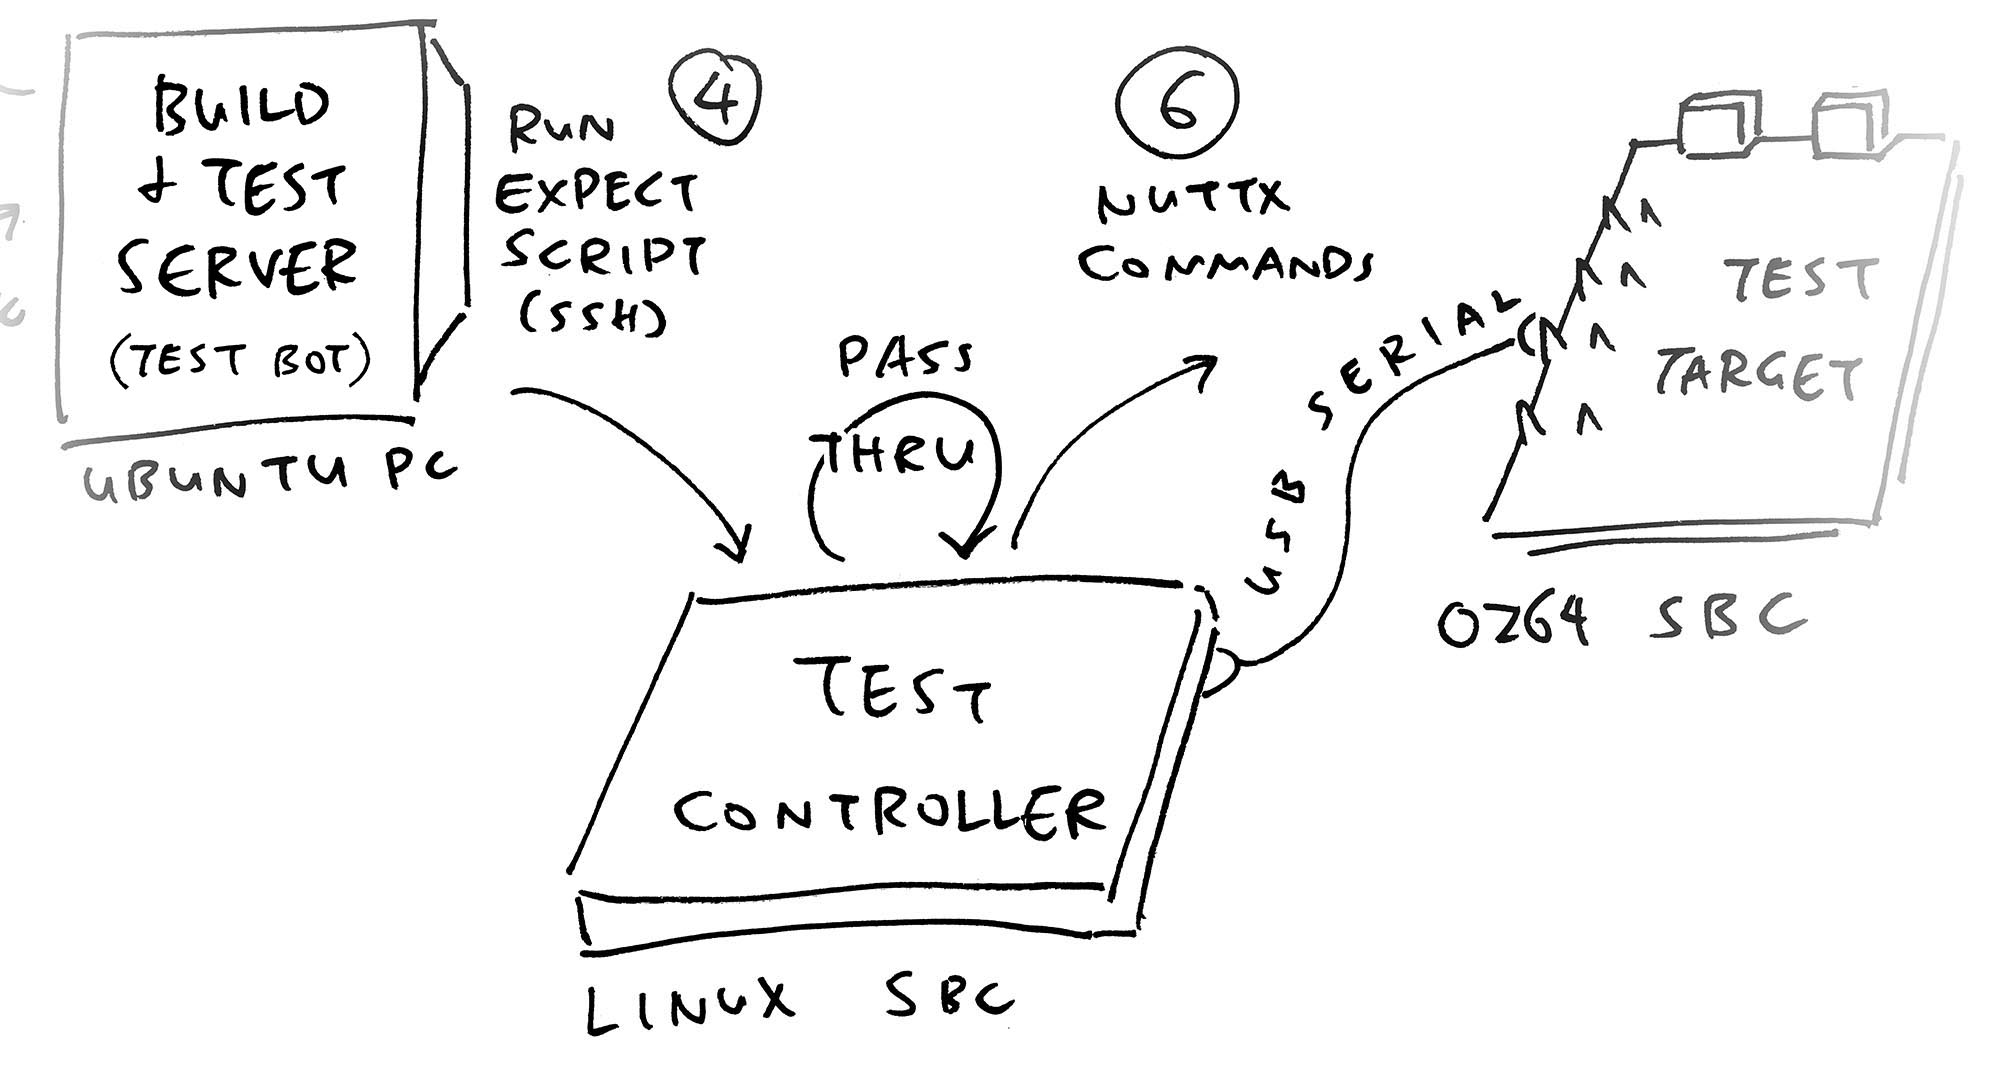 BUILD
& TEST
SERVER
(TEST BOT)
UBUNTU PC
4
RUN
EXPECT
SCRIPT
(SSH)
PASS
THRU
6
NUTTX
COMMANDS
USB SERIAL
TEST
TARGET
OZ64 SBC
TEST
CONTROLLER
LINUX SBC